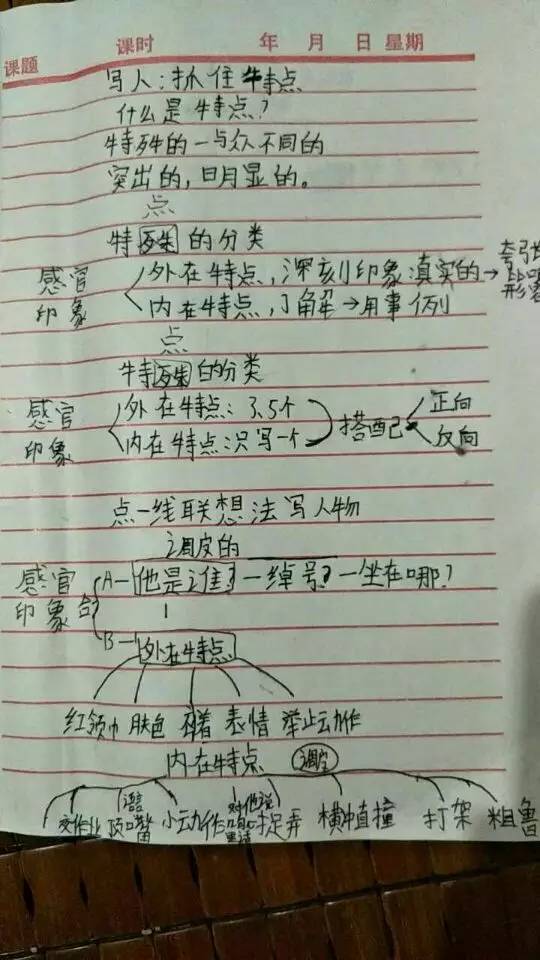 课题 课时 年 月 日 星期
写人：抓住特点
什么是特点？
特殊的一与众不同的
突出的，明显的。
点
特殊的分类
感官印象 外在特点，深刻印象 真实的→夸张 比喻 形容
内在特点，了解→用事例
点
特殊的分类
感官印象 外在特点：3.5个 搭配 正向
内在特点：只写一个 反向
点一线联想法写人物
调皮的
感官印象 台 A一他是谁？一绰号？一坐在哪？
B一外在特点
红领巾 肤色 表情 举止动作
内在特点 调皮
交作业 顶嘴 语言 小动作 对他说 捉弄 横冲直撞 打架 粗鲁